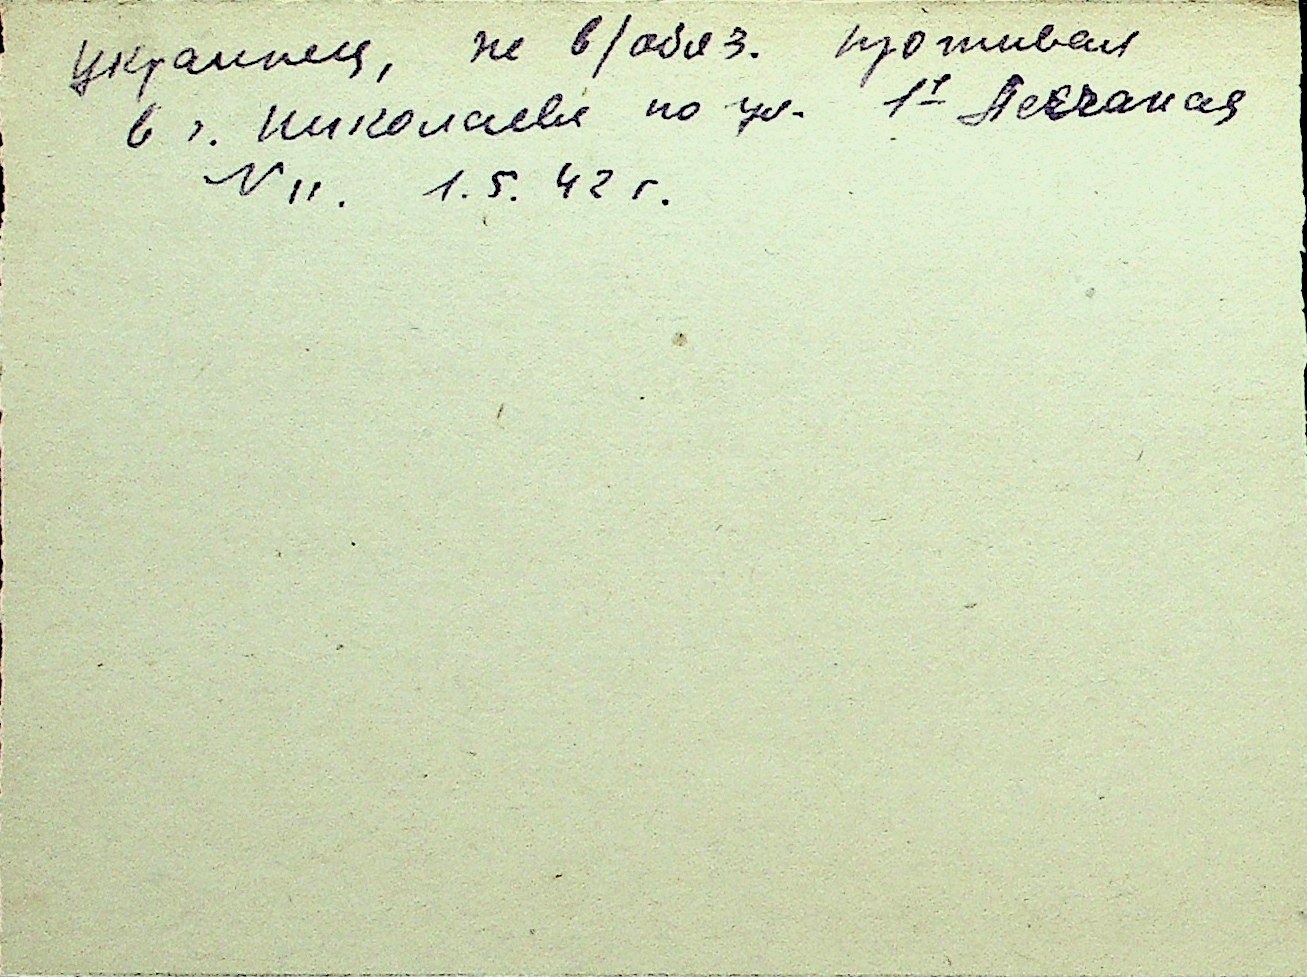 украинец, не в/обяз. проживал
в г. Николаеве по ул. 1я Песчаная
N 11. 1.5.42 г.